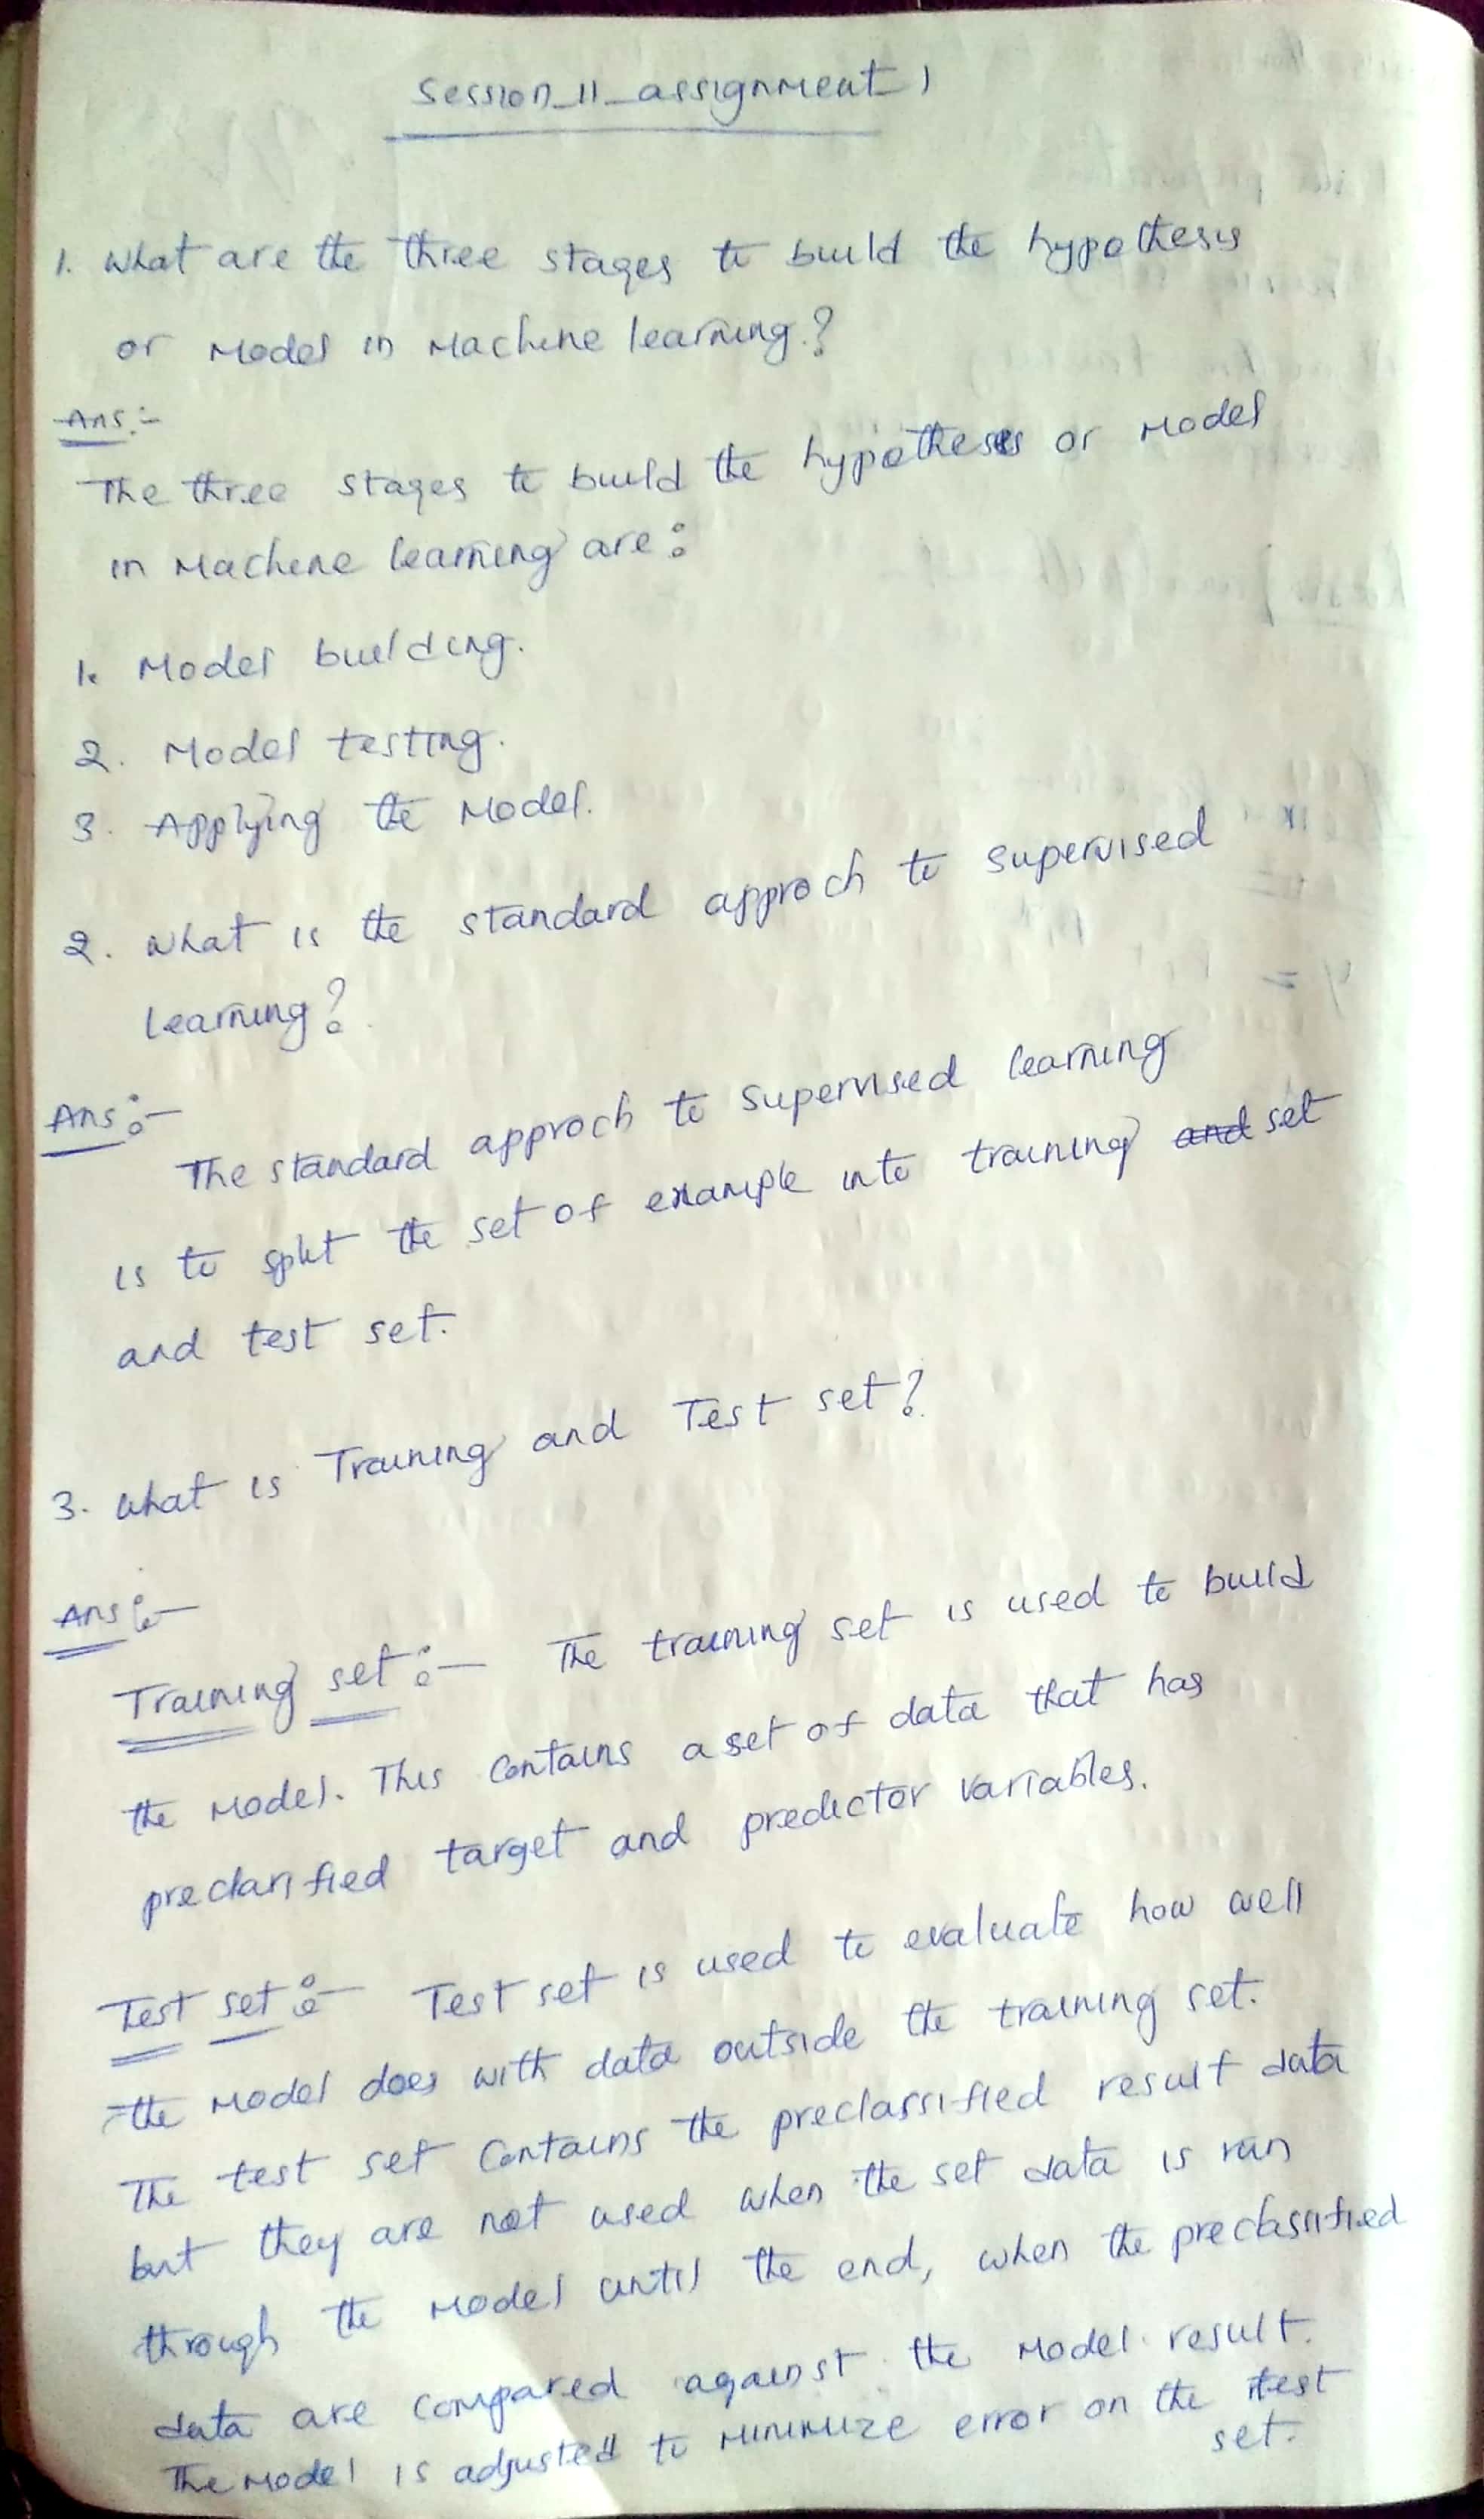 Session_11_assignment 1
1. What are the three stages to build the hypothesis
or Model in Machine learning?
Ans:-
The three stages to build the hypotheses or Model
in Machine learning are:
1. Model building.
2. Model testing.
3. Applying the Model.
2. What is the standard approch to supervised
learning?
Ans:-
The standard approch to supervised learning
is to split the set of example into training and set
and test set.
3. What is Training and Test set?
Ans:-
Training set:- The training set is used to build
the Model. This contains a set of data that has
preclassified target and predictor variables.
Test set:- Test set is used to evaluate how well
the Model does with data outside the training set.
The test set contains the preclassified result data
but they are not used when the set data is run
through the Model until the end, when the preclassified
data are compared against the Model result.
The Model is adjusted to minimize error on the test
set.